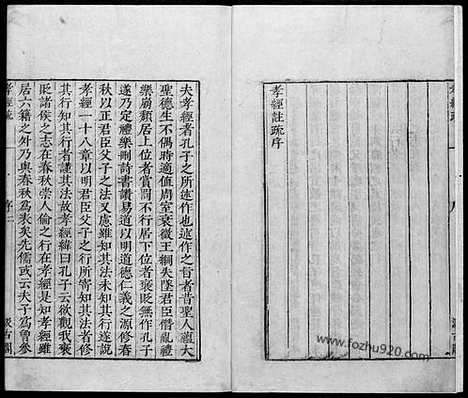 孝經註疏序
夫孝經者孔子之所述作也述作之旨者昔聖人蘊大
聖德生不偶時適值周室衰微王綱失墜君臣僭亂禮
樂崩頹居上位者賞罰不行居下位者褒貶無作孔子
遂乃定禮樂刪詩書讚易道以明道德仁義之源修春
秋以正君臣父子之法又慮雖知其法未知其行遂說
孝經一十八章以明君臣父子之行所寄知其法者修
其行知其行者謹其法故孝經緯曰孔子云欲觀我褒
貶諸侯之志在春秋崇人倫之行在孝經是知孝經雖
居六籍之外乃與春秋為表矣先儒或云夫子為曾參
孝經疏
序
汲古閣
www.fozhu920.com